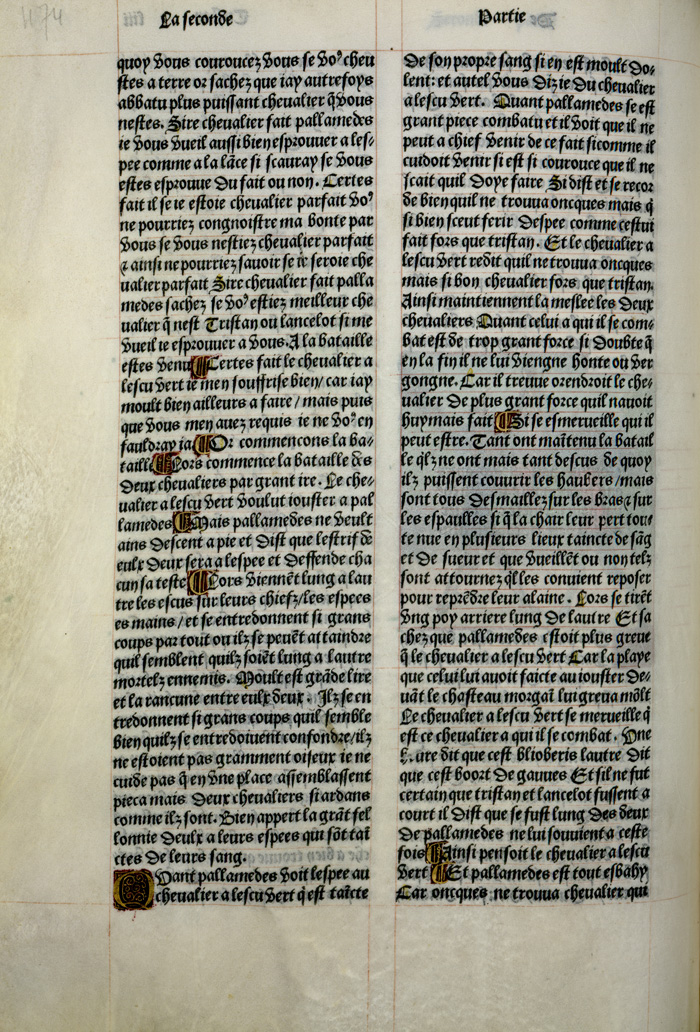 La seconde
Partie
quoy vous couroucez vous se voꝰ cheu
stes a terre or sachez que iay autrefoys
abbatu plus puissant cheualier q̃ vous
nestes. Sire cheualier fait pallamedes
ie vous vueil aussi bien esprouuer a les⸗
pee comme a la lãce si scauray se vous
estes esprouue du fait ou non. Certes
fait il se ie estoie cheualier parfait voꝰ
ne pourriez congnoistre ma bonte par
vous se vous nestiez cheualier parfait
⁊ ainsi ne pourriez sauoir se ie seroie che
ualier parfait Sire cheualier fait palla
medes sachez se voꝰ estiez meilleur che
ualier q̃ nest Tristan ou lancelot si me
vueil ie esprouuer a vous. A la bataille
estes venu ¶ Certes fait le cheualier a
lescu vert ie men souffrise bien/car iay
moult bien ailleurs a faire/mais puis
que vous men auez requis ie ne voꝰ en
fauldray ia ¶ Or commencons la ba⸗
taille ¶ Lors commence la bataille des
deux cheualiers par grant ire. Le che⸗
ualier a lescu vert voulut iouster a pal
lamedes ¶ Mais pallamedes ne veult
ains descent a pie et dist que lestrif de
eulx deux sera a lespee et deffende cha
cun sa teste ¶ Lors viennẽt lung a lau
tre les escus sur leurs chiefz/les espees
es mains/et se entredonnent si grans
coups par tout ou ilz se peuẽt attaindre
quil semblent quilz soiẽt lung a lautre
mortelz ennemis. Moult est grãde lire
et la rancune entre eulx deux. Ilz se en
tredonnent si grans coups quil semble
bien quilz se entredoiuent confondre/ilz
ne estoient pas gramment oiseux ie ne
cuide pas q̃ en vne place assemblassent
pieca mais deux cheualiers si ardans
comme ilz sont. Bien appert la grãt fel
lonnie deulx a leurs espees qui sõt tai
ctes de leurs sang.
Quant pallamedes voit lespee au
cheualier a lescu vert q̃ est taicte
de son propre sang si en est moult do⸗
lent: et autel vous diz ie du cheualier
a lescu vert. Quant pallamedes se est
grant piece combatu et il voit que il ne
peut a chief venir de ce fait si comme il
cuidoit venir si est si courouce que il ne
scait quil doye faire Si dist et se recor
de bien quil ne trouua oncques mais q̃
si bien sceut ferir despee comme cestui
fait fors que tristan. Et le cheualier a
lescu vert redit quil ne trouua oncques
mais si bon cheualier fors que tristan.
Ainsi maintiennent la meslee les deux
cheualiers Quant celui a qui il se com⸗
bat est de trop grant force si doubte q̃
en la fin il ne lui viengne honte ou ver
gongne. Car il treuue orendroit le che⸗
ualier de plus grant force quil nauoit
huymais fait ¶ Si se esmerueille qui il
peut estre. Tant ont maĩtenu la batail
le qlz ne ont mais tant descus de quoy
ilz puissent couurir les haubers/mais
sont tous desmaillez sur les bras ⁊ sur
les espaulles si q̃ la chair leur pert tou⸗
te nue en plusieurs lieux taincte de sãg
et de sueur et que vueillẽt ou non telz
sont attournez ql̃ les conuient reposer
pour reprẽdre leur alaine. Lors se tirẽt
vng poy arriere lung de lautre Et sa
chez que pallamedes estoit plus greue
q̃ le cheualier a lescu vert Car la playe
que celui lui auoit faicte au iouster de⸗
uãt le chasteau morgaĩ lui greua mõlt
Le cheualier a lescu vert se merueille q̃
est ce cheualier a qui il se combat. Vne
heure dit que cest blioberis lautre dit
que cest boort de gauues Et sil ne fut
certain que tristan et lancelot fussent a
court il dist que se fust lung des deux
de pallamedes ne lui souuient a ceste
fois ¶ Ainsi pensoit le cheualier a lescu
vert ¶ Et pallamedes est tout esbahy
Car oncques ne trouua cheualier qui